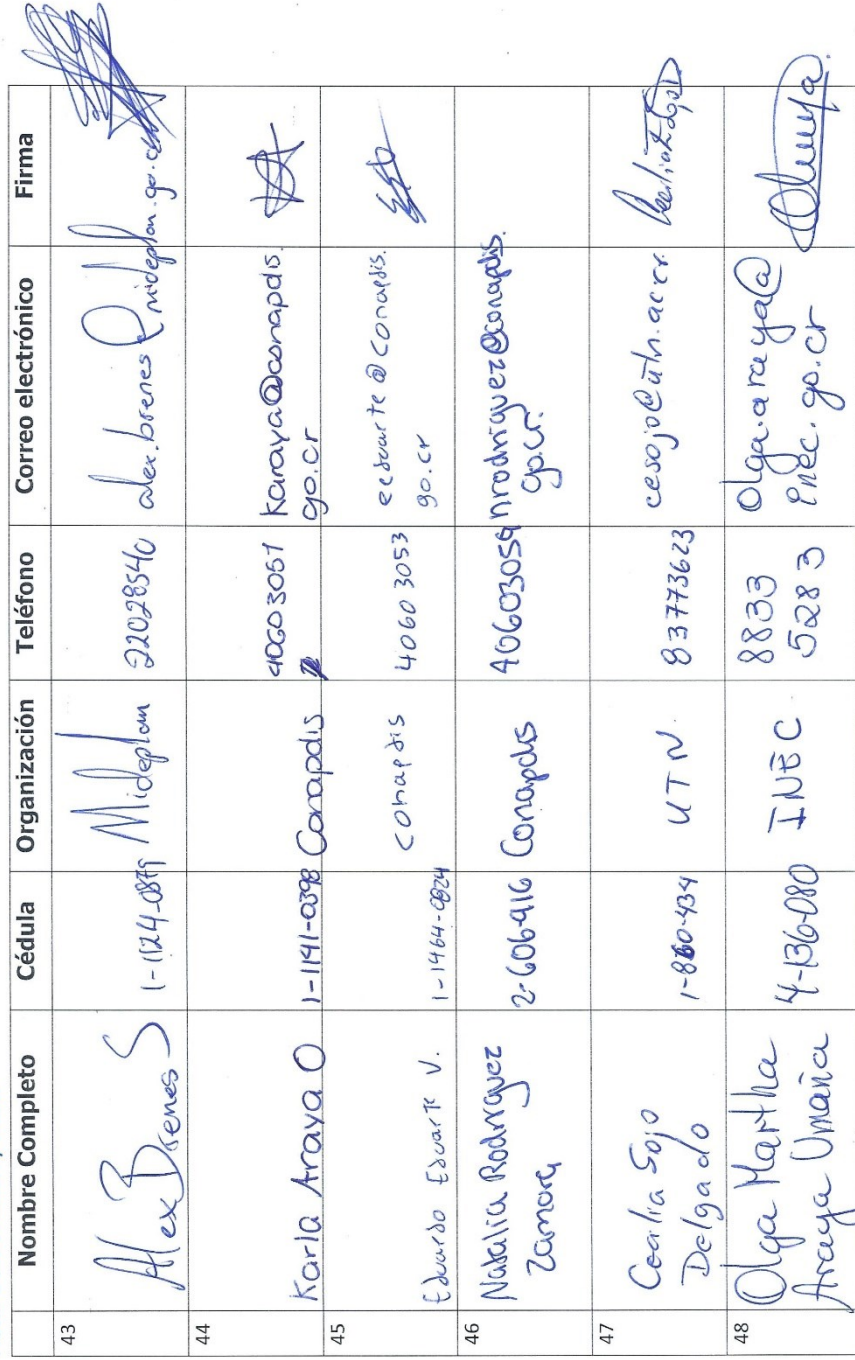 Nombre Completo Cédula Organización Teléfono Correo electrónico Firma
43 Alex Brenes S 1-1124-0879 Mideplan 22028540 alex.brenes@mideplan.go.cr
44 Karla Araya O 1-1141-0398 Conapdis 40603051 Karaya@conapdis.
go.cr
45 Eduardo Eduarte V. 1-1464-0924 conapdis 40603053 eeduarte@conapdis.
go.cr
46 Natalia Rodríguez 2-606-916 Conapdis 40603059 nrodriguez@conapdis.
Zamora go.cr.
47 Cecilia Sojo 1-860-434 UTN 83773623 cesojo@utn.ac.cr
Delgado
48 Olga Martha 4-136-080 INEC 8833 Olga.araya@
Araya Umaña 5283 inec.go.cr